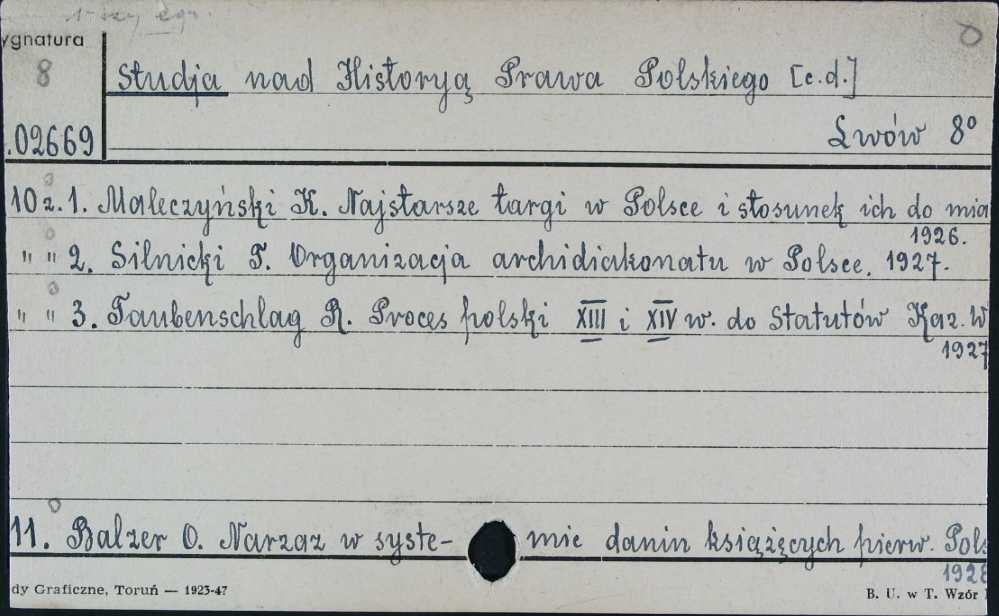 1-szy egz.
ygnatura
8
Studja nad Historyą Prawa Polskiego [c.d.]
.02669
Lwów 8°
10 z. 1. Maleczyński K. Najstarsze targi w Polsce i stosunek ich do mia
1926.
" " 2. Silnicki T. Organizacja archidiakonatu w Polsce. 1927.
" " 3. Taubenschlag R. Proces polski XIII i XIV w. do Statutów Kaz. W
1927
11. Balzer O. Narzaz w syste- mie danin książęcych pierw. Pols
1928
dy Graficzne, Toruń — 1923-47
B. U. w T. Wzór